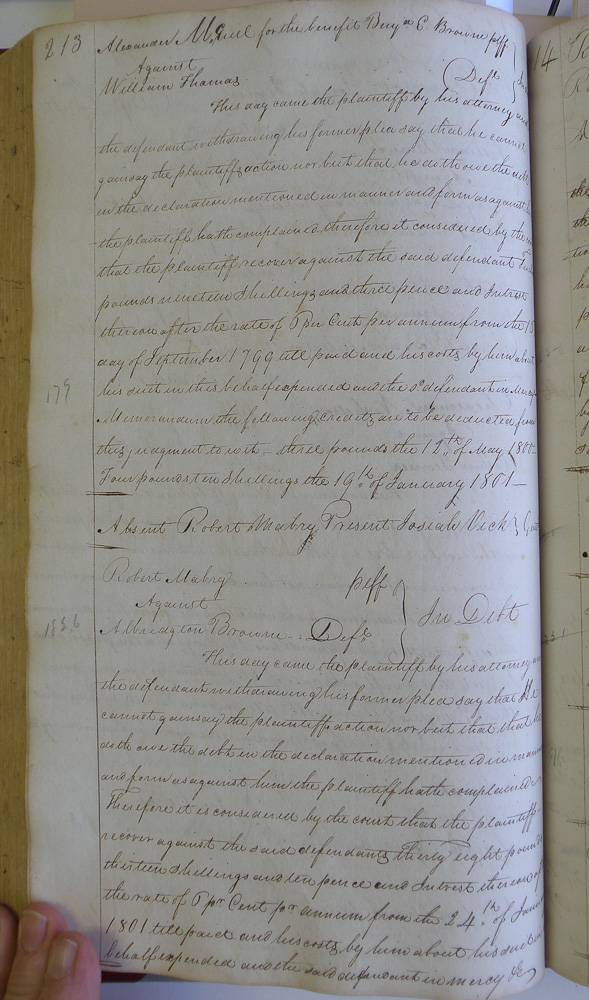 213
Alexander McNeill for the benefit Benja C Browne plff
Against
William Thomas Deft
This day came the plaintiff by his attorney and
the defendant withdrawing his former plea say that he cannot
gainsay the plaintiffs action nor but that he doth owe the debt
in the declaration mentioned in manner and form as against
the plaintiff hath complained therefore it considered by the
that the plaintiff recover against the said defendant
pounds nineteen shillings and three pence and Intrest
thereon after the rate of 5 per Cent per annum from the
day of September 1799 till paid and his costs by him about
his suit in this behalf expended and the sd defendant in Mercy
179
Memorandum the following credits are to be deducted from
this judgment to wit – three pounds the 19th of May 1800–
Four pounds ten shillings the 19th of January 1801–
Absent Robert Mabry Present Josiah Vick } Gent
Robert Mabry plff
Against } In Debt
Albridgton Browne Deft
This day came the plaintiff by his attorney
the defendant withdrawing his former plea say that He
cannot gainsay the plaintiffs action nor but that that he
doth owe the debt in the declaration mentioned in manner
and form as against him the plaintiff hath complained
Therefore it is considered by the court that the plaintiff
recover against the said defendants thirty eight pounds
thirteen shillings and ten pence and Intrest thereon
the rate of 5 pr Cent pr annum from the 24th of
1801 till paid and his costs by him about his suit in
behalf expended and the said defendant in mercy &c
14